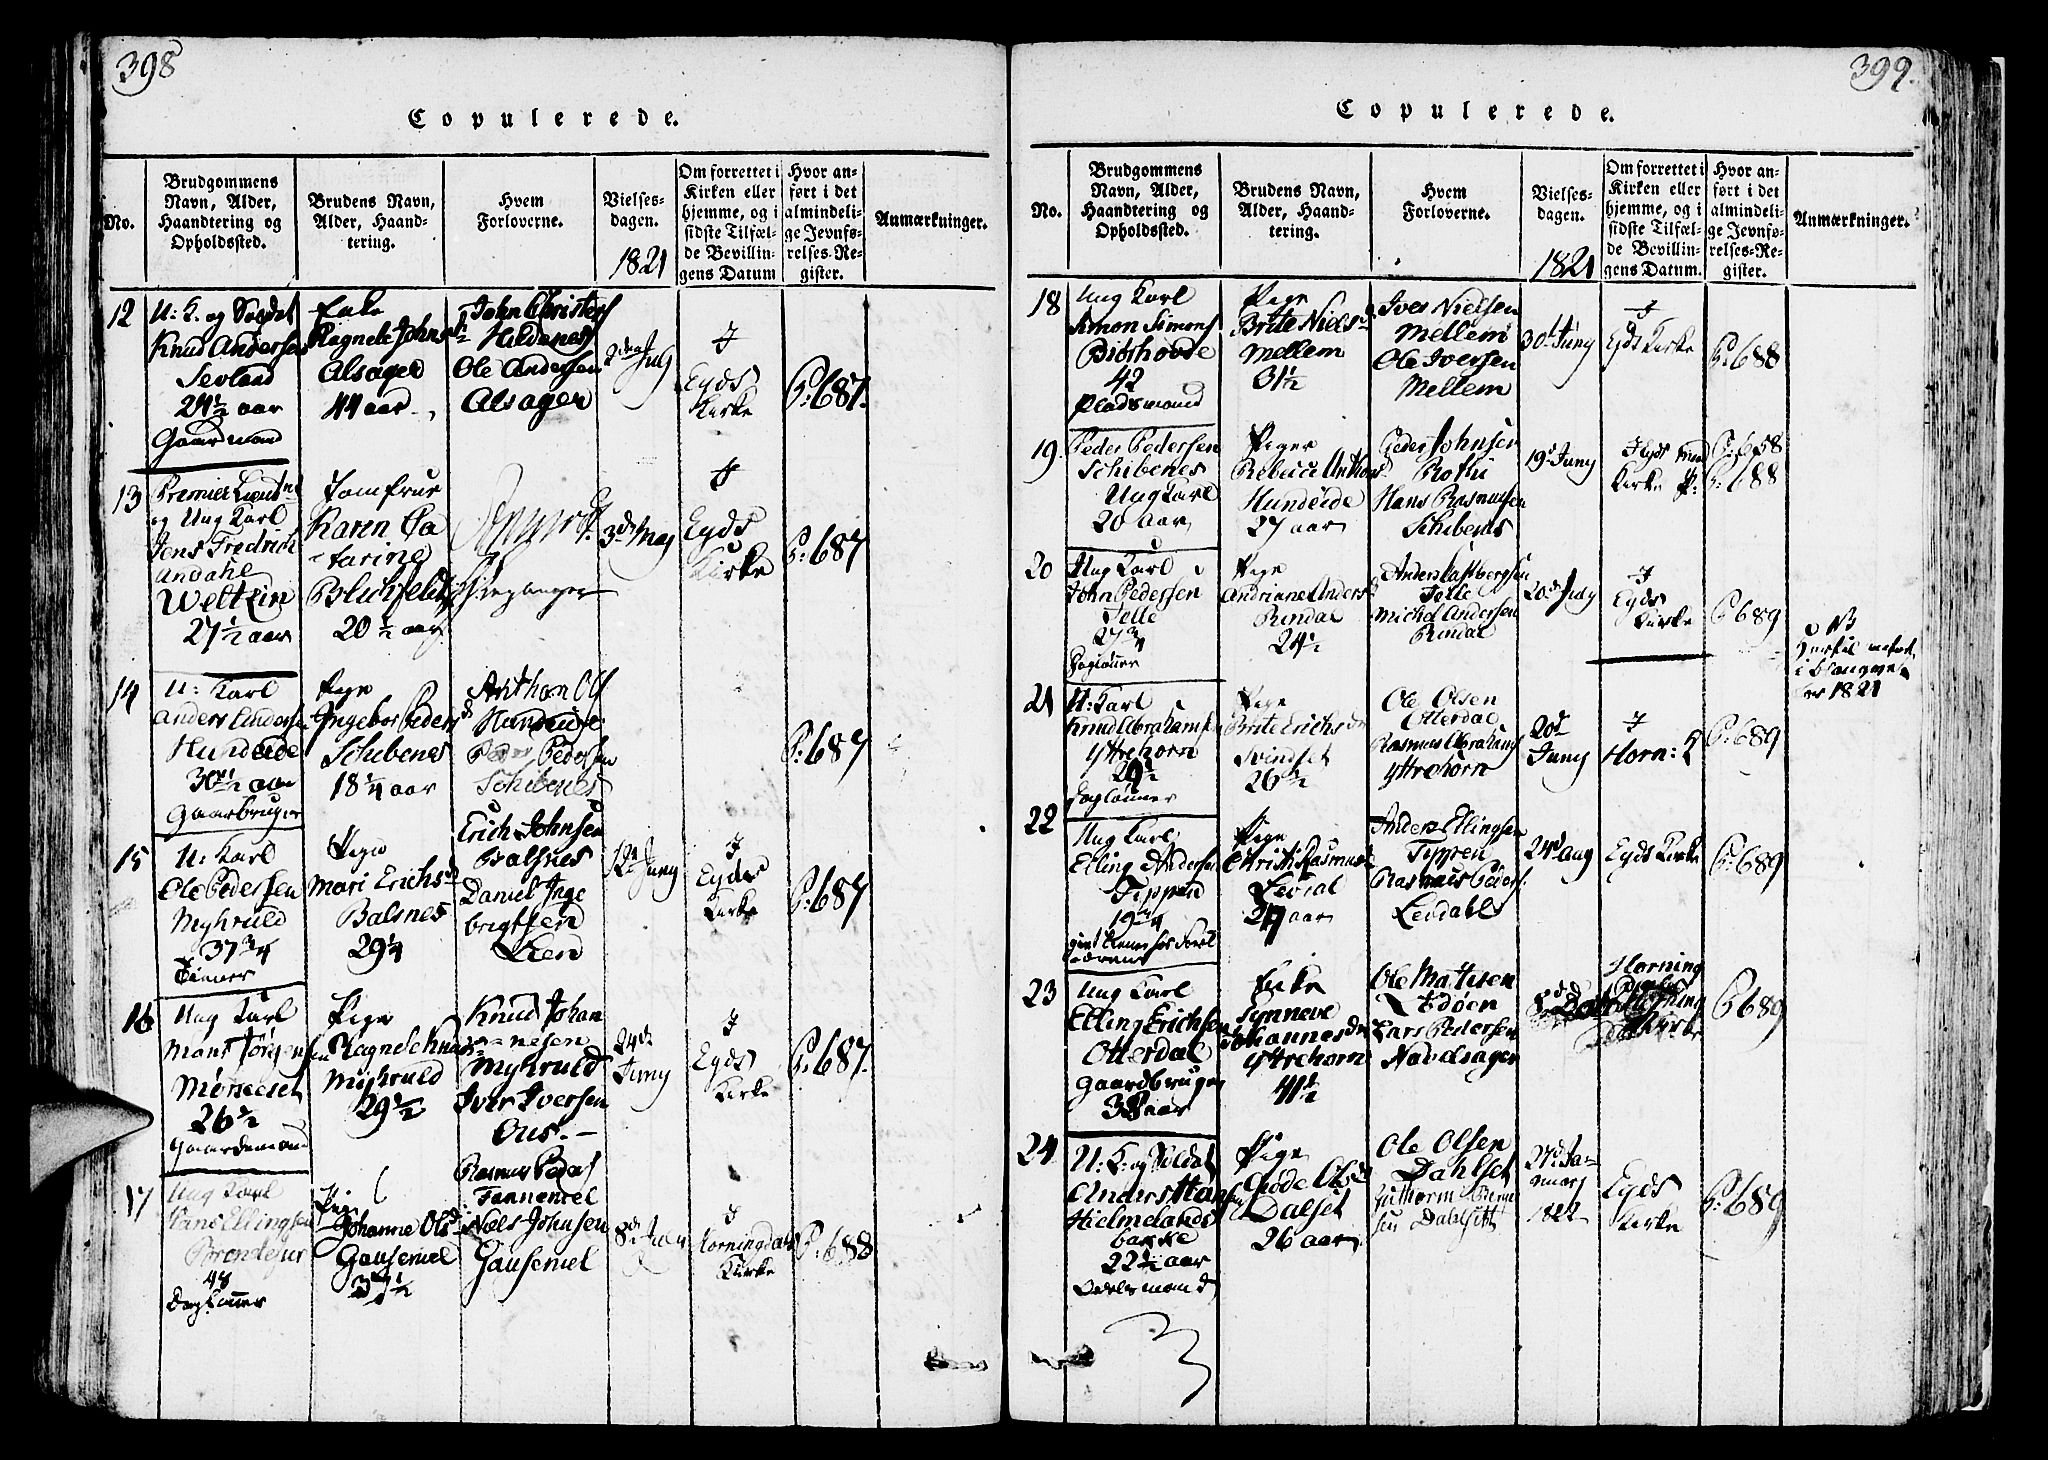 398
Copulerede.
No.
Brudgommens
Navn, Alder,
Haandtering og
Opholdssted.
Brudens Navn,
Alder, Haand-
tering.
Hvem
Forloverne.
Vielses-
dagen.
1821
Om forrettet i
Kirken eller
hjemme, og i
sidste Tilfæl-
de Bevillin-
gens Datum
Hvor an-
ført i det
almindeli-
ge Jevnfø-
relses-Re-
gister.
Anmærkninger.
12
U: K. og Soldat
Knud Andersen
Sevland
24½ aar
Gaardmand
Enke
Ragnele Johns
Alsager
44 aar
John Christens
Hildenes
Ole Andersen
Alsager
2den July
I
Eyds
Kirke
P: 687.
13
Premier Lieutn
og Ung Karl
Jens Fredrich
Undahl
Weltzin
27½ aar
Jomfrue
Karen Ca
tarine
Blichfeldt
20½ aar
3d May
Eyds
Kirke
P: 687
14
U: Karl
Anders Anders
Hundeide
30½ aar
Gaardbruger
Pige
Ingebor Peders d
Schibenes
18¼ aar
Anthon Ols
Hundeide
Peder Pedersen
Schibenes
P: 687
15
U: Karl
Ole Pedersen
Myhruld
37¾
Tiener
Pige
Mari Erichs d
Balsnes
29¼
Erich Johnsen
Balsnes
Daniel Inge
brigtsen
Lien
12 Juny
I
Eyds
Kirke
P: 687
16
Ung Karl
Mons Jørgensen
Møneset
26½
Gaardemand
Pige
Myhruld
29½
Knud Johan
nesen
Myhruld
Iver Iversen
Ous.
24d
Juny
I
Eyds
Kirke
P: 687.
17
Ung Karl
Hans Ellingsen
48
Dagl
Pige
Johanne Ols d
Gausemel
37½
Rasmus Peders
Tennemel
Niels Johnsen
Gausemel
8d July
I
Horningdals
Kirke
P: 688
399.
Copulerede.
No.
Brudgommens
Navn, Alder,
Haandtering og
Opholdssted.
Brudens Navn,
Alder, Haand-
tering.
Hvem
Forloverne.
Vielses-
dagen.
1821
Om forrettet i
Kirken eller
hjemme, og i
sidste Tilfæl-
de Bevillin-
gens Datum.
Hvor an-
ført i det
almindeli-
ge Jevnfø-
relses-Re-
gister.
Anmærkninger.
18
Ung Karl
Simon Simons
Biørhovde
42
Pladsmand
Pige
Brite Niels d
Mellem
31½
Ives Nielsen
Mellem
Ole Iversen
Mellem
30d Juny
I
Eyds Kirke
P: 688
19.
Peder Pedersen
Schibenes
Ung Karl
20 aar
Pige
Rebecca Anthons
Hundeide
27 aar
Peder Johnsen
Rothi
Hans Rasmusen
Schibenes
19d Juny
I Eyds
Kirke
P: 658
P: 688
20
Ung Karl
John Pedersen
Felle
27¾
Daglønner
Pige
Andriane Anders
Rindal
24½
Felle
Michel Andersen
Rindal
20d July
I
Eyds
Kirke
P 689
NB
i
1821
21
U: Karl
Knud Abrahams
Yttrehorn
29½
Daglønner
Pige
Brite Erichs dr
Svindset
26½
Ole Olsen
Otterdal
Rasmus Abrahams
Yttrehorn
20d
Juny
I
Horn: K
P: 689
22
Ung Karl
Elling Andersen
Tippen
19¾
Pige
Christi Rasmus d
Levdal
24 aar
Anders Ellingsen
Tippen
Rasmus Peders
Levdahl
24d Aug
Eyds Kirke
P: 689
23
Ung Karl
Elling Erichsen
Otterdal
Gaardbruger
38 aar
Enke
Synneve
Johannes dr
Yttrehorn
41½
Ole Mattisen
Ødøen
Lars Pedersen
Navelsager
Horning
P 689
24
U: K: og Soldat
Anders Hansen
Hielmelands
bakke
22½ aar
Odelsmand
Pige
Gøde Ols d
Dalset
26 aar
Ole Olsen
Dahlset
Guthorm
Dahlsett
27d Ja-
nuary
1822
Eyds
Kirke
P: 689